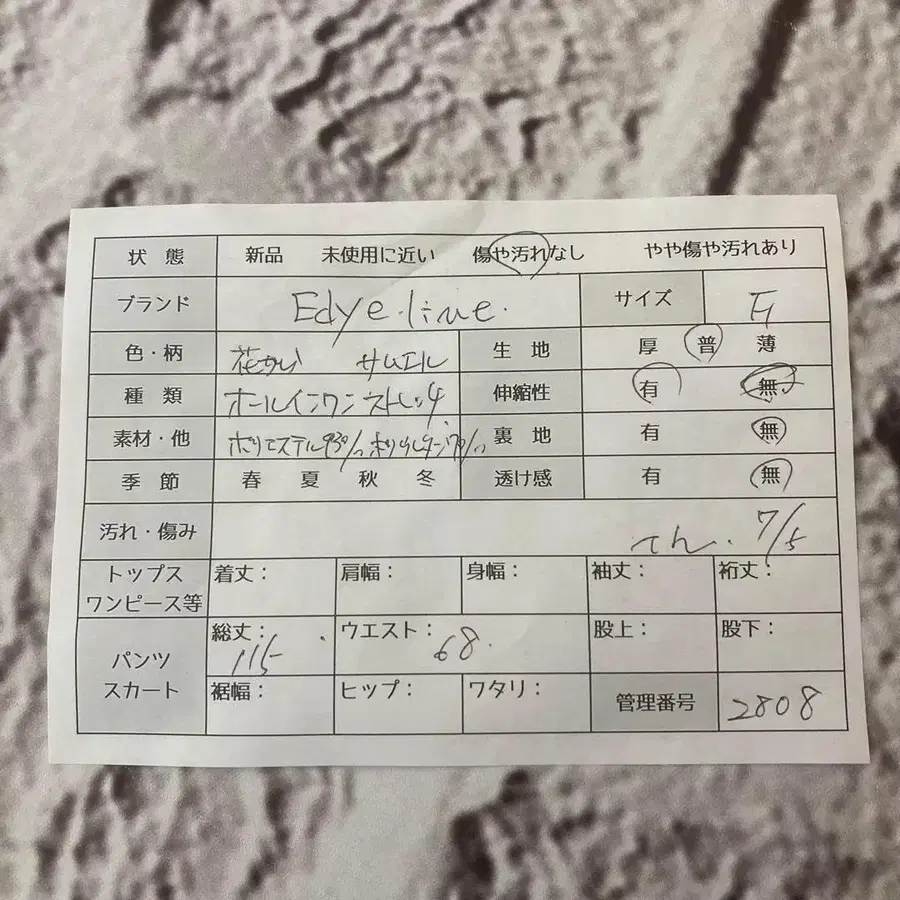 状 態 新品 未使用に近い 傷や汚れなし やや傷や汚れあり
ブランド Edye.line. サイズ
色・柄 生 地 厚 普 薄
種 類 オールインワン ストレッチ 伸縮性 有 無
素材・他 ポリエステル93% ポリウレタン7% 裏 地 有 無
季 節 春 夏 秋 冬 透け感 有 無
汚れ・傷み 7/5
トップス
ワンピース等 着丈： 肩幅： 身幅： 袖丈： 裄丈：
パンツ
スカート 総丈： 115 ウエスト： 68. 股上： 股下：
裾幅： ヒップ： ワタリ： 管理番号 2808